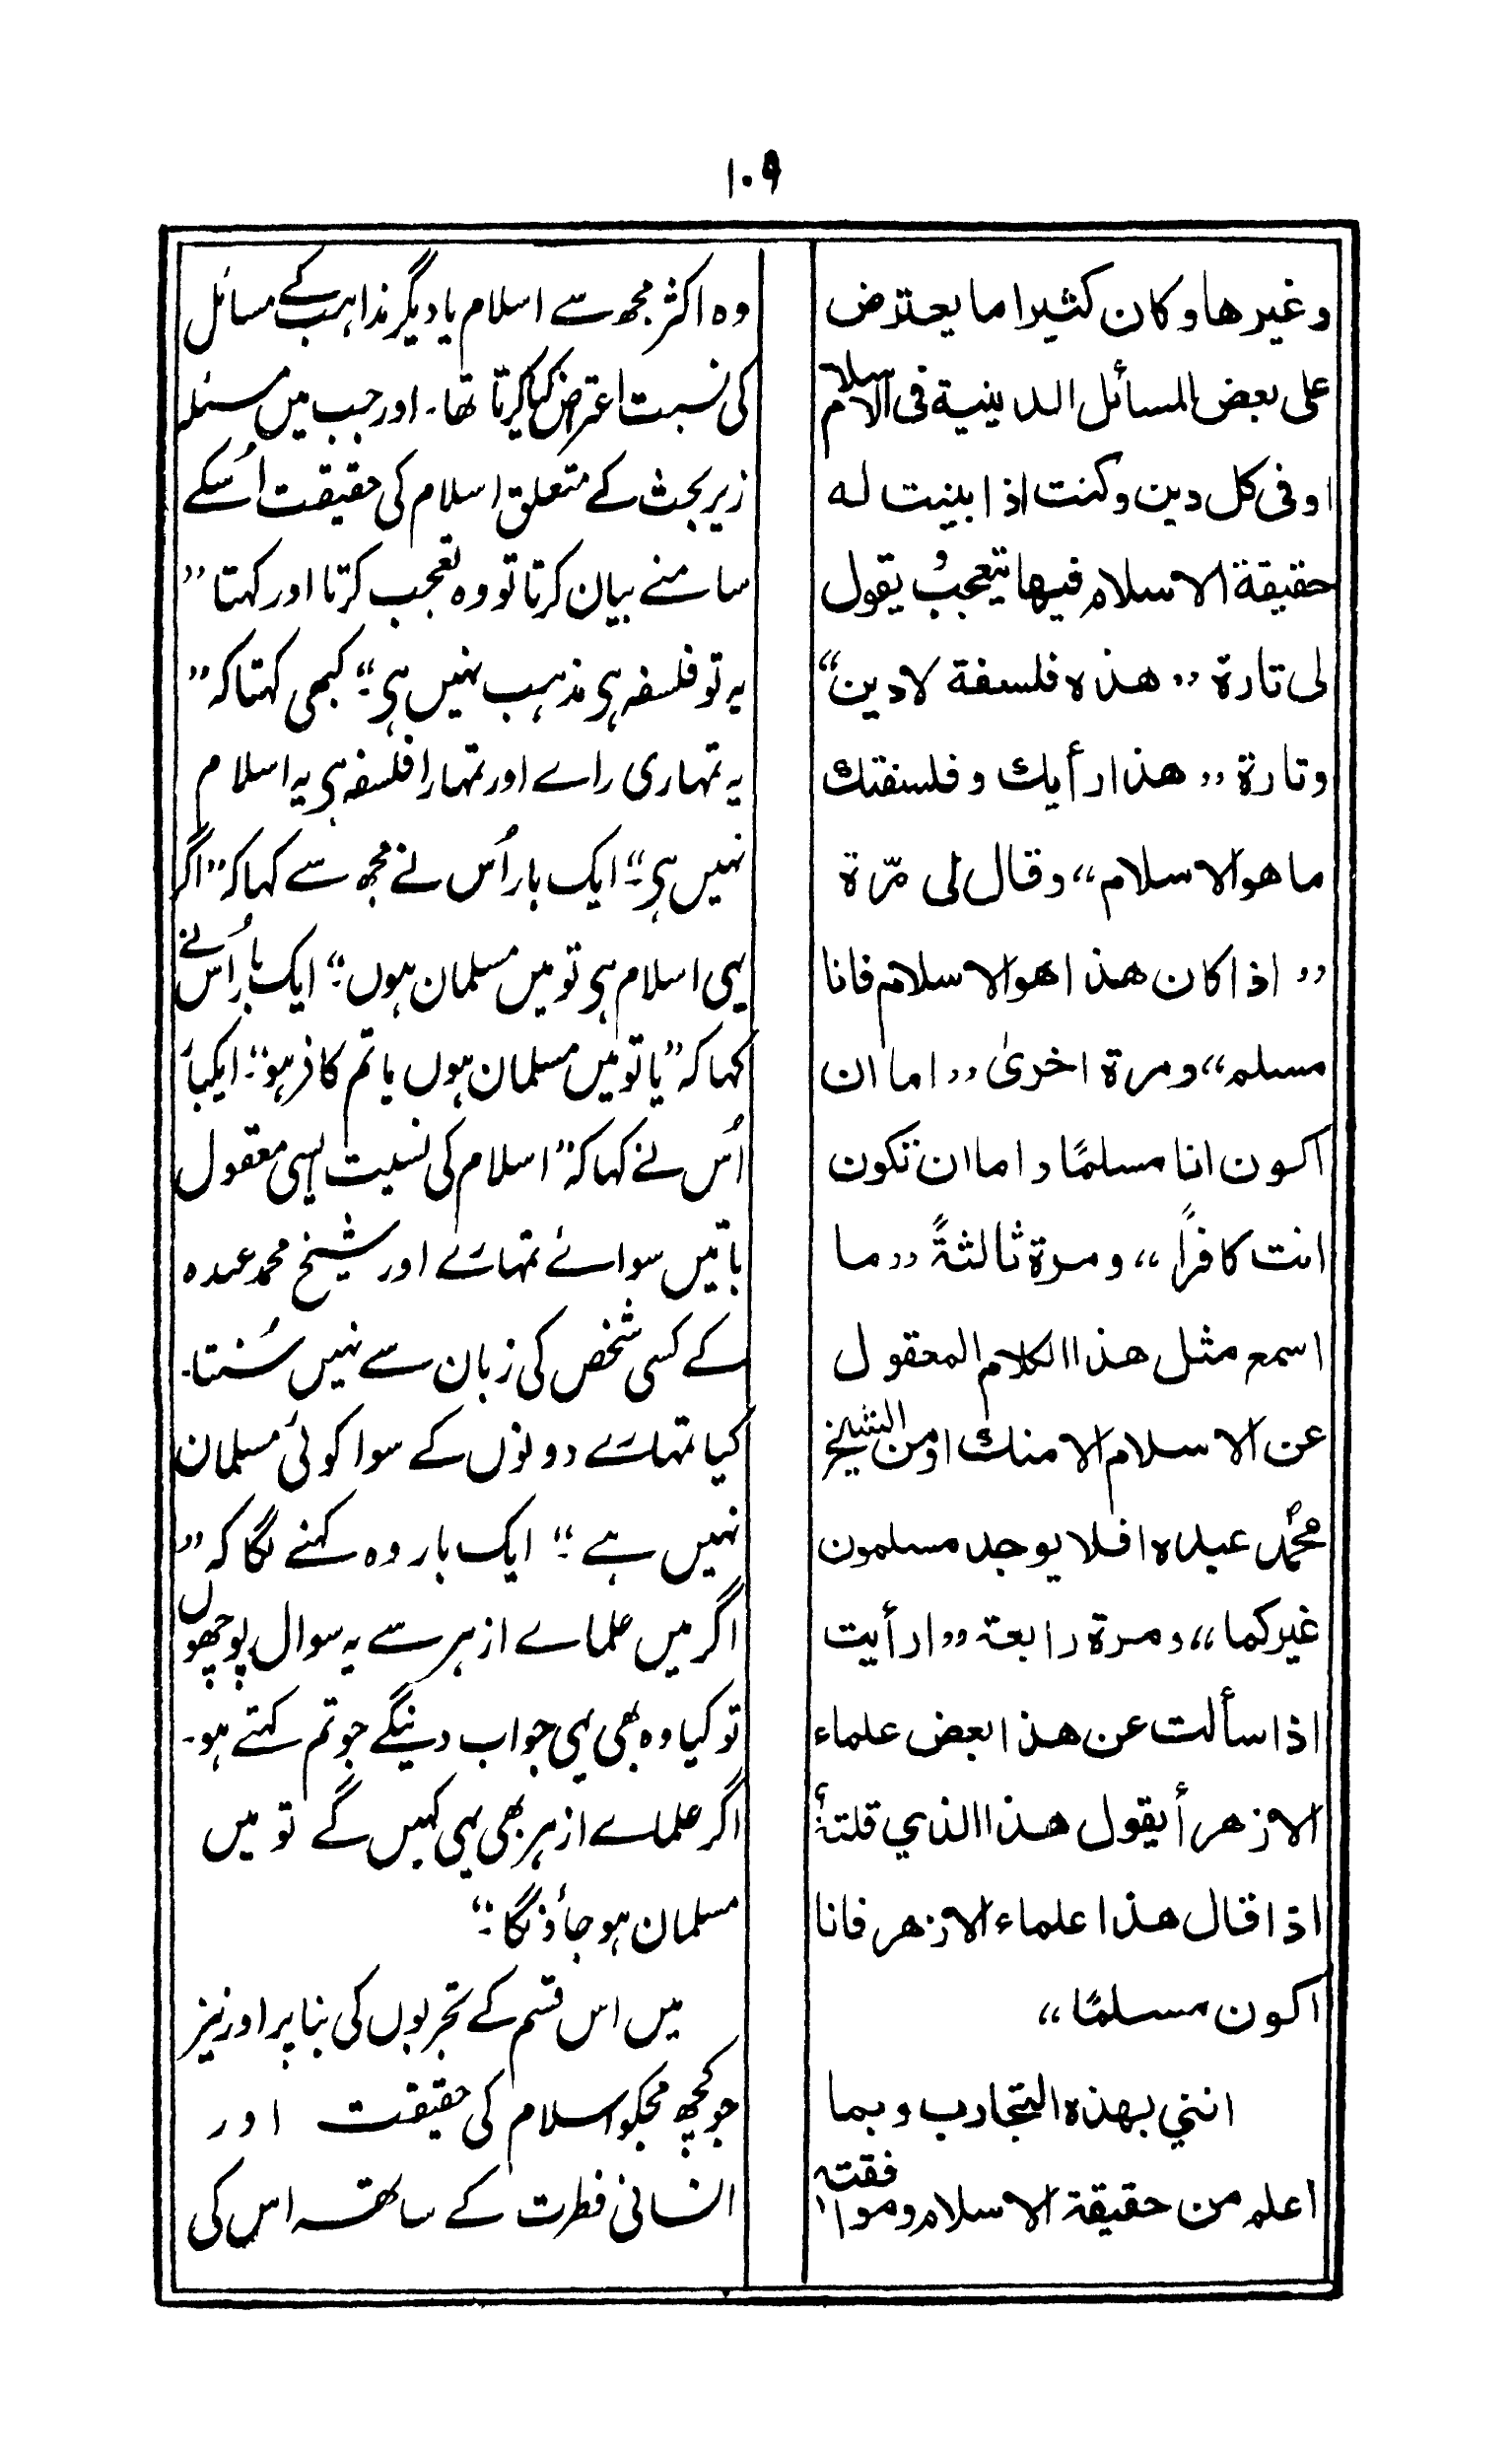 ۱۰۹
وغيرها وكان كثيرا ما يعترض
على بعض المسائل الدينية فى الاسلام
او فى كل دين وكنت اذا بينت له
حقيقة الاسلام فيها يتعجب و يقول
لى تارة ,, هذه فلسفة لا دين“
وتارة ,, هذا رأيك و فلسفتك
ما هو الاسلام،، وقال لى مرّة
,, اذا كان هذا هو الاسلام فانا
مسلم،، ومرة اخرىٰ ,, اما ان
اكون انا مسلمًا و اما ان تكون
انت كافراً،، ومرة ثالثةً ,, ما
اسمع مثل هذا الكلام المعقول
عن الاسلام الا منك او من الشيخ
محمّد عبده افلا يوجد مسلمون
غيركما،، ومرة رابعة ,, ارأيت
اذا سألت عن هذا بعض علماء
الازهر أيقول هذا الذي قلته؟
اذا قال هذا علماء الازهر فانا
اكون مسلمًا،،
انني بهذه التجارب وبما
اعلم من حقيقة الاسلام وموافقته
وہ اکثر مجھ سے اسلام یا دیگر مذاہب کے مسائل
کی نسبت اعتراض کیا کرتا تھا۔ اور جب میں مسئلہ
زیر بحث کے متعلق اسلام کی حقیقت اُسکے
سامنے بیان کرتا تو وہ تعجب کرتا اور کہتا ”
یہ تو فلسفہ ہی مذہب نہیں ہی“؛ کبھی کہتا کہ ”
یہ تمہاری راے اور تمہارا فلسفہ ہی یہ اسلام
نہیں ہی“؛ ایک بار اُس نے مجھ سے کہا کہ ”اگر
یہی اسلام ہی تو میں مسلمان ہوں“؛ ایک بار اُس نے
کہا کہ ”یا تو میں مسلمان ہوں یا تم کافر ہو“؛ ایکبار
اُس نے کہا کہ ”اسلام کی نسبت ایسی معقول
باتیں سوائے تمہارے اور شیخ محمد عبدہ
کے کسی شخص کی زبان سے نہیں سُنتا۔
کیا تمہارے دونوں کے سوا کوئی مسلمان
نہیں ہے“؛ ایک بار وہ کہنے لگا کہ ”
اگر میں علماے ازہر سے یہ سوال پوچھوں
تو کیا وہ بھی یہی جواب دینگے جو تم کہتے ہو۔
اگر علماے ازہر بھی یہی کہیں گے تو میں
مسلمان ہو جاؤنگا“؛
میں اس قسم کے تجربوں کی بنا پر اور نیز
جو کچھ مجکو اسلام کی حقیقت اور
انسانی فطرت کے ساتھ اس کی